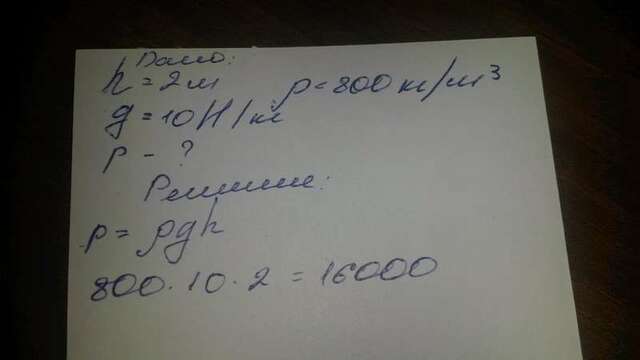 Дано:
h = 2 м ρ = 800 кг/м³
g = 10 Н/кг
p - ?
Решение:
p = ρgh
800 · 10 · 2 = 16000